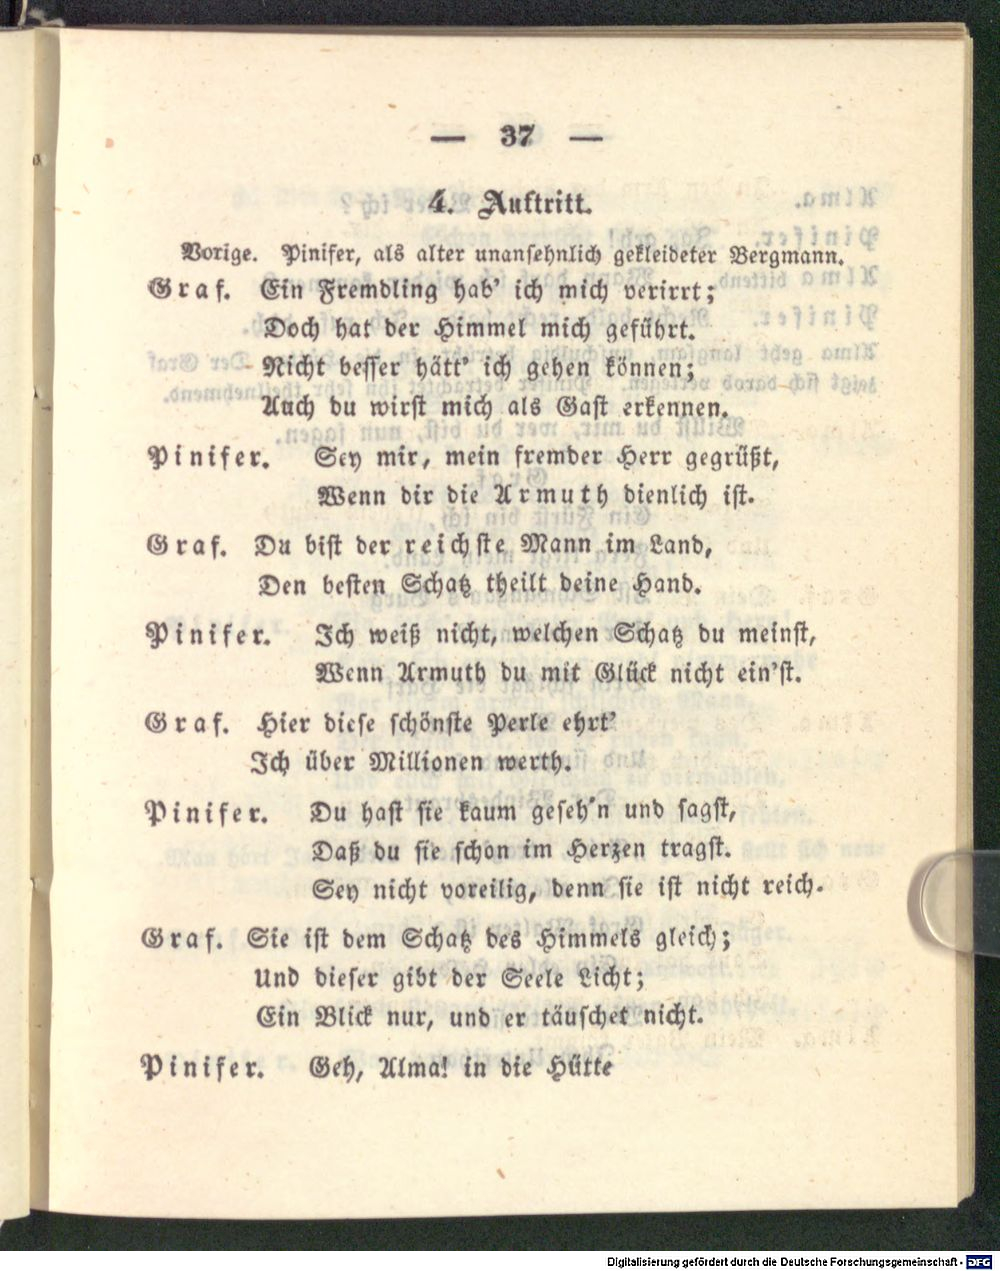 — 37 —
4. Auftritt.
Vorige. Pinifer, als alter unansehnlich gekleideter Bergmann.
Graf. Ein Fremdling hab' ich mich verirrt;
Doch hat der Himmel mich geführt.
Nicht besser hätt' ich gehen können;
Auch du wirst mich als Gast erkennen.
Pinifer. Sey mir, mein fremder Herr gegrüßt,
Wenn dir die Armuth dienlich ist.
Graf. Du bist der reichste Mann im Land,
Den besten Schatz theilt deine Hand.
Pinifer. Ich weiß nicht, welchen Schatz du meinst,
Wenn Armuth du mit Glück nicht ein'st.
Graf. Hier diese schönste Perle ehrt'
Ich über Millionen werth.
Pinifer. Du hast sie kaum geseh'n und sagst,
Daß du sie schon im Herzen tragst.
Sey nicht voreilig, denn sie ist nicht reich.
Graf. Sie ist dem Schatz des Himmels gleich;
Und dieser gibt der Seele Licht;
Ein Blick nur, und er täuschet nicht.
Pinifer. Geh, Alma! in die Hütte
Digitalisierung gefördert durch die Deutsche Forschungsgemeinschaft - DFG